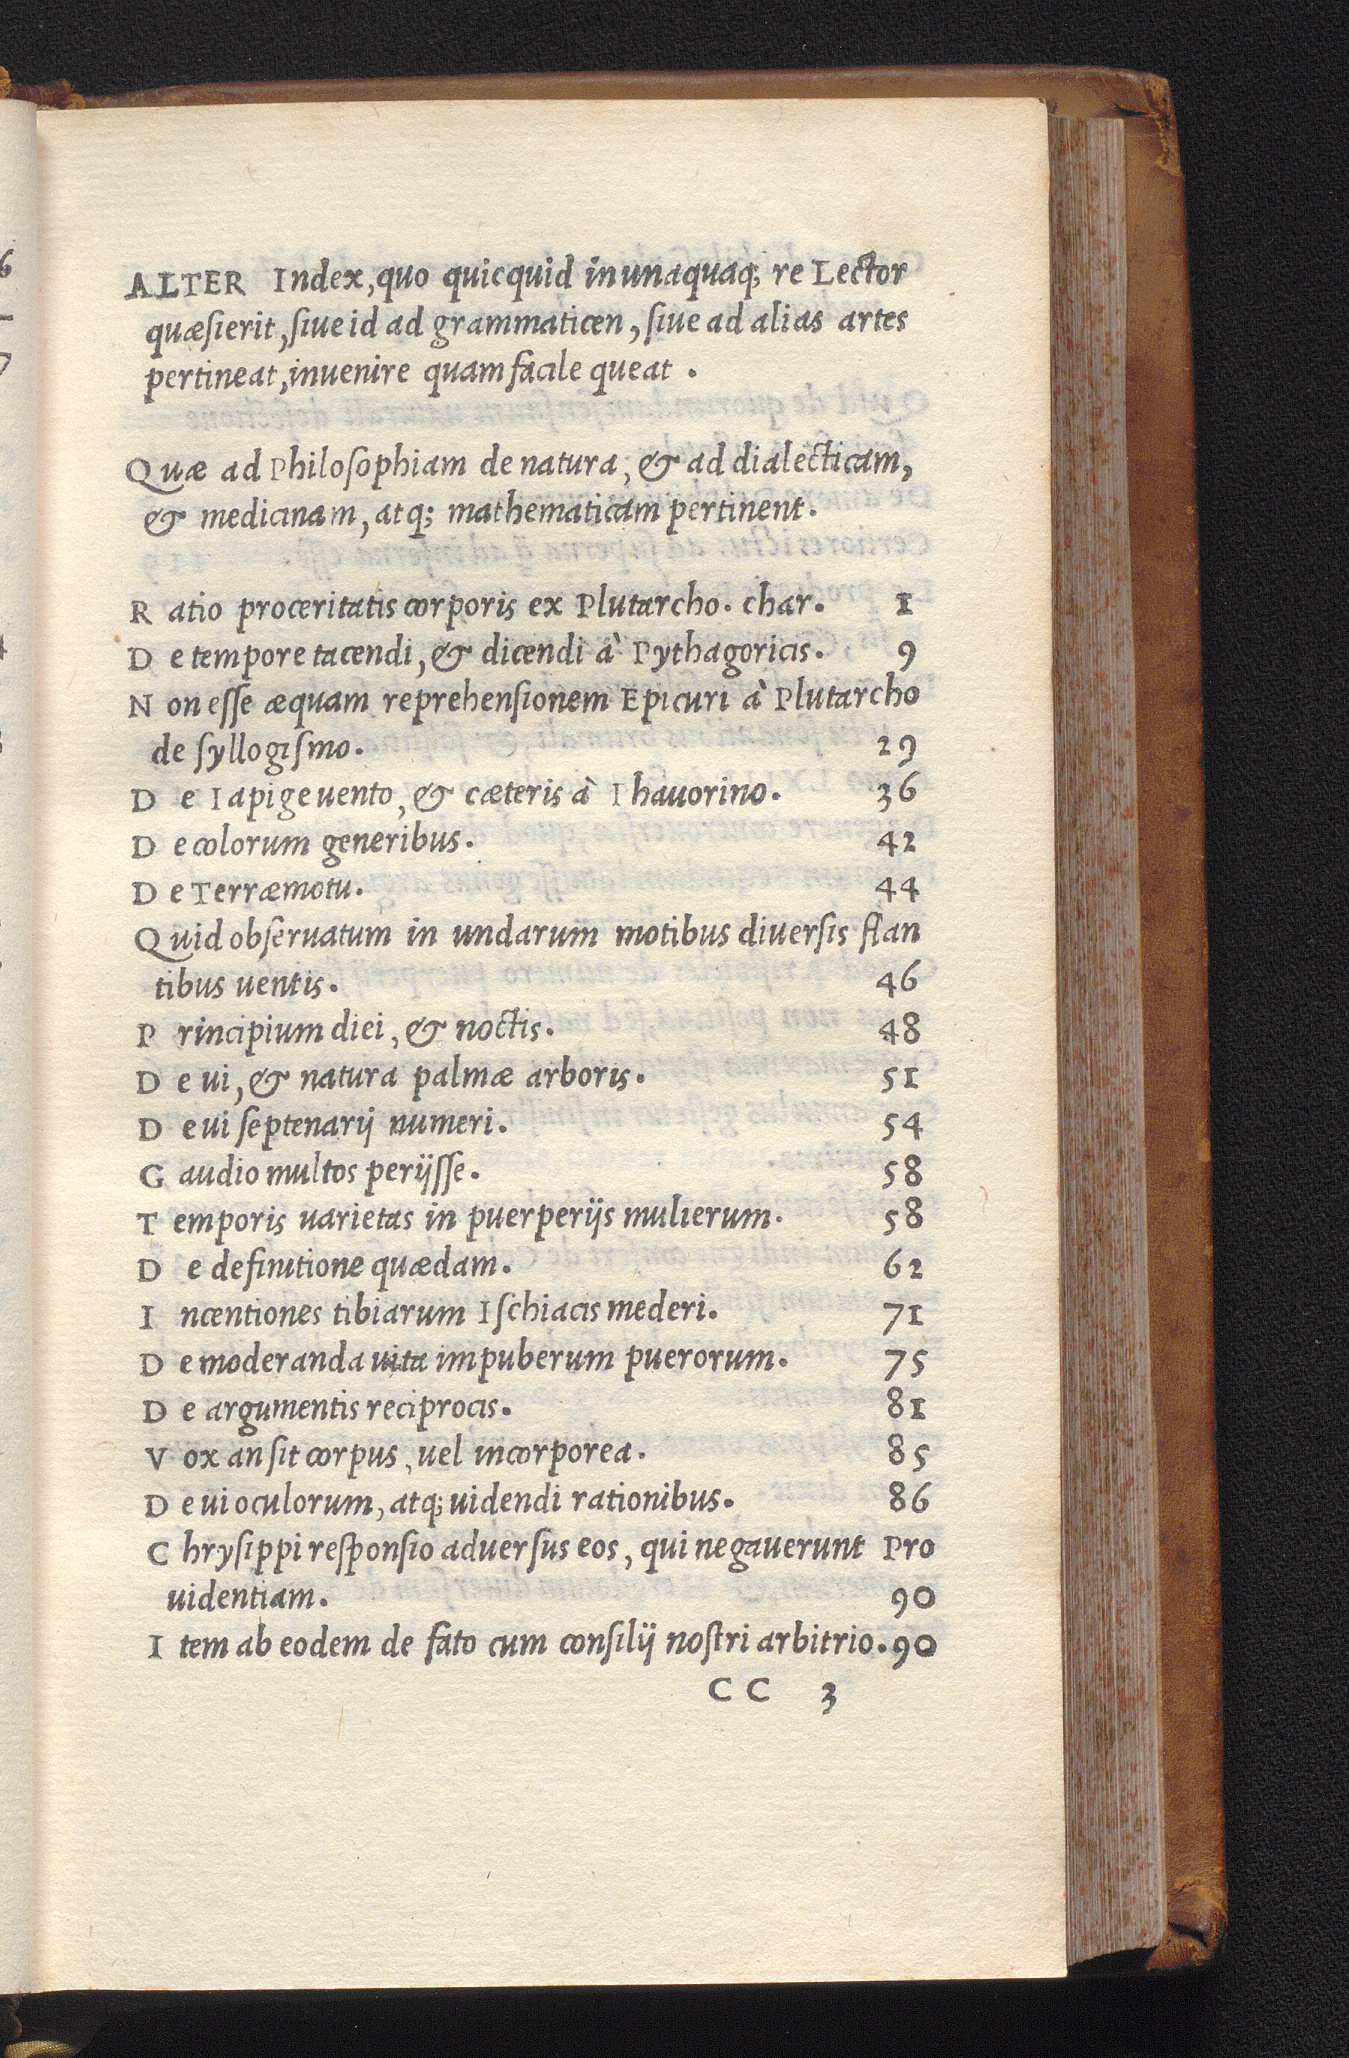 ALTER Index, quo quicquid in unaquaq; re Lector
quæsierit, siue id ad grammaticen, siue ad alias artes
pertineat, inuenire quam facile queat.
Quæ ad Philosophiam de natura, & ad dialecticam,
& medicinam, atq; mathematicam pertinent.
Ratio proceritatis corporis ex Plutarcho. char. 1
De tempore tacendi, & dicendi à Pythagoricis. 9
Non esse æquam reprehensionem Epicuri à Plutarcho
de syllogismo. 29
De Iapige uento, & cæteris à Ihauorino. 36
De colorum generibus. 42
De Terræmotu. 44
Quid obseruatum in undarum motibus diuersis flan
tibus uentis. 46
Principium diei, & noctis. 48
De ui, & natura palmæ arboris. 51
De ui septenarij numeri. 54
Gaudio multos perijsse. 58
Temporis uarietas in puerperijs mulierum. 58
De definitione quædam. 62
Incentiones tibiarum Ischiacis mederi. 71
De moderanda uita impuberum puerorum. 75
De argumentis reciprocis. 81
Vox an sit corpus, uel incorporea. 85
De ui oculorum, atq; uidendi rationibus. 86
Chrysippi responsio aduersus eos, qui negauerunt Pro
uidentiam. 90
Item ab eodem de fato cum consilij nostri arbitrio. 90
CC 3